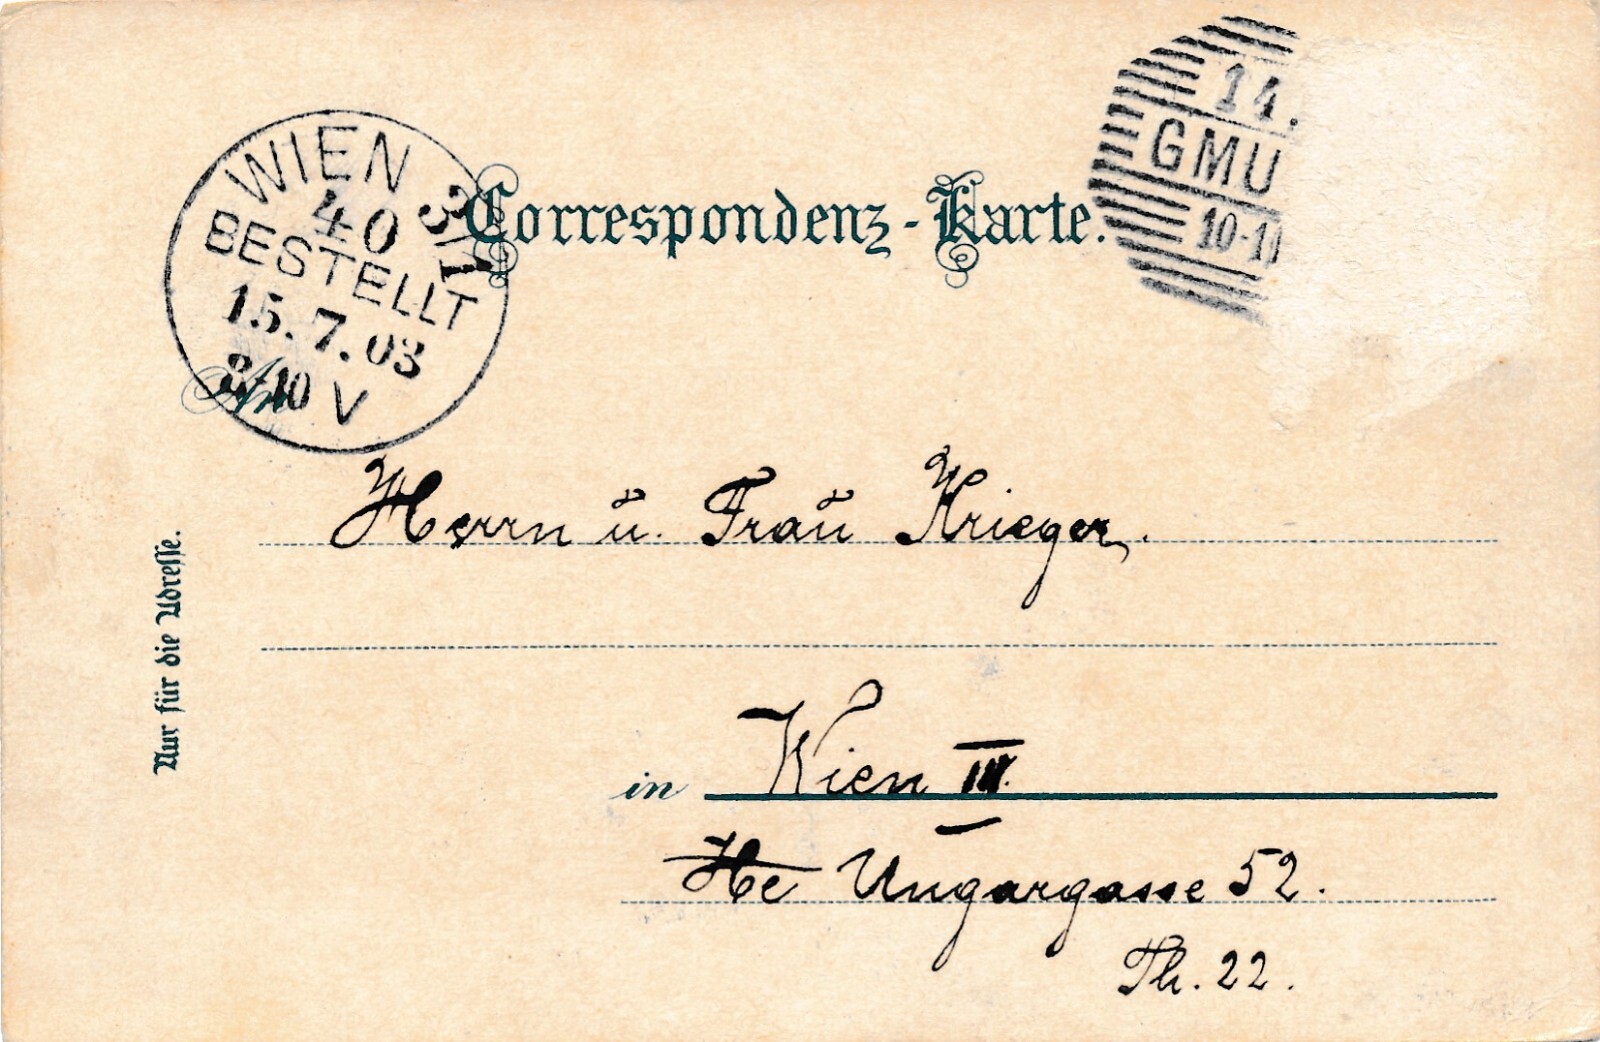 WIEN 3/1
40
BESTELLT
15.7.03
8-10 V
14.
GMU
10-1
Correspondenz-Karte.
An
Herrn u. Frau Krieger.
Nur für die Adresse.
in Wien III.
He Ungargasse 52.
Th. 22.